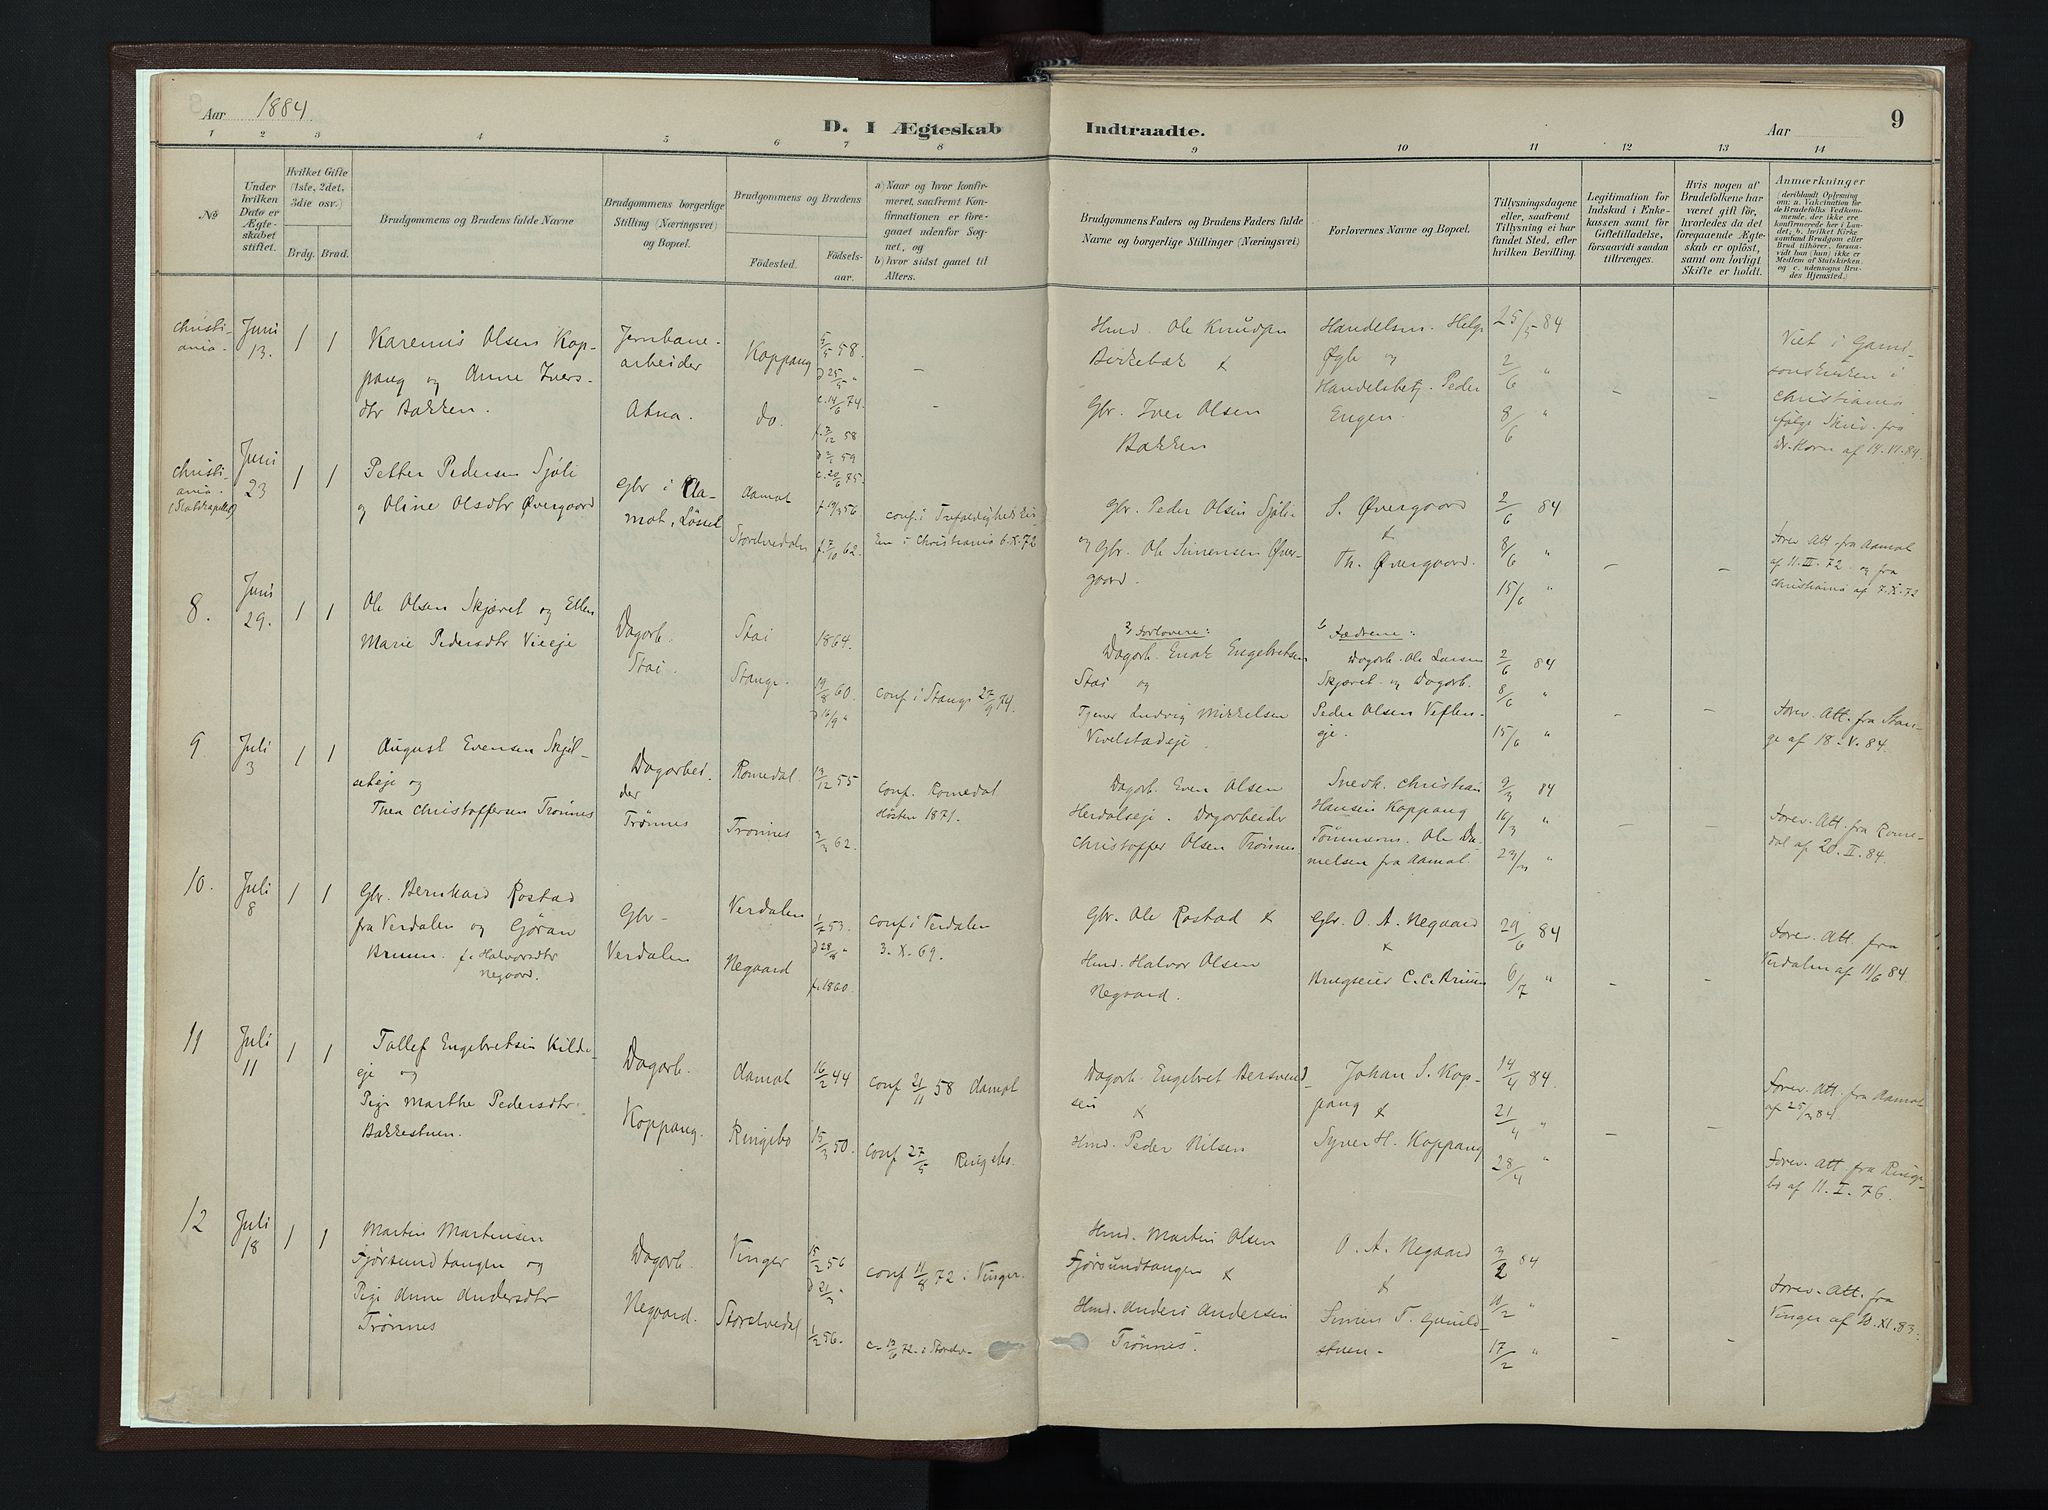 Aar 1884
D. I Ægteskab Indtraadte.
Aar
9
1 2 3 4 5 6 7 8 9 10 11 12 13 14
№
Under hvilken Dato er Ægteskabet stiftet.
Hvilket Gifte (1ste, 2det, 3die osv.)
Brdg. Brud.
Brudgommens og Brudens fulde Navne
Brudgommens borgerlige Stilling (Næringsvei) og Bopæl.
Brudgommens og Brudens
Fødested. Fødselsaar.
a) Naar og hvor konfirmeret, saafremt Konfirmationen er foregaaet udenfor Sognet, og
b) hvor sidst gaaet til Alters.
Brudgommens Faders og Brudens Faders fulde Navne og borgerlige Stillinger (Næringsvei)
Forlovernes Navne og Bopæl.
Tillysningsdagene eller, saafremt Tillysning ei har fundet Sted, efter hvilken Bevilling.
Legitimation for Indskud i Enkekassen samt for Giftetilladelse, forsaavidt saadan tiltrænges.
Hvis nogen af Brudefolkene har været gift før, hvorledes da det foregaaende Ægteskab er opløst, samt om lovligt Skifte er holdt.
Anmærkninger
(deriblandt Oplysning om: a. Vakcination for de Brudefolks Vedkommende, der ikke ere konfirmerede her i Landet, b. hvilket Kirkesamfund Brudgom eller Brud tilhører, forsaavidt han (hun) ikke er Medlem af Statskirken, og c. udensogns Brudes Hjemsted.)
Christiania. Juni 13. 1 1
Karenius Olsen Koppang og Anne Iversdtr Bakken.
Jernbanearbeider Atna.
Koppang
do.
5/5 58.
d 25/5 "
c. 14/6 74.
f. 7/12 58
c. 20/6 75.
Hmd. Ole Knudsen Birkebæk &
Gbr. Iver Olsen Bakken
Handelsm. Helge Øgle og
Handelsbetj. Peder Engen.
25/5 84
2/6 "
8/6 "
Viet i Garnisonskirken i Christiania ifølge Skriv. fra
af 14.11.84.
Christiania. (Slotskapellet) Juni 23 1 1
Petter Pedersen Sjøli og Oline Olsdtr Øvergaard
Gbr i Aamot, Løsset
Aamot
Storelvedalen
f. 19/3 56
f. 7/10 62.
conf. i Trefoldighedskirken i Christiania 6.X.72
Gbr. Peder Olsen Sjøli og Gbr. Ole Simensen Øvergaard.
S. Øvergaard
&
Th. Øvergaard.
2/6 84
8/6 "
15/6 "
Forev. Att. fra Aamot af 11.III.72. og fra Christiania af 7.X.72
8. Juni 29. 1 1
Ole Olsen Skjæret og Ellen Marie Pedersdtr
Dagarb. Stai.
Stai
Stange.
1864.
19/8 60.
d 16/9 "
conf i Stange 27/9 74.
Forlovere:
Dagarb. Enok Engebretsen Stai og
Tjener Ludvig Mikkelsen Vivelstadeje.
Fædrene:
Dagarb. Ole Larsen Skjæret og Dagarb. Peder Olsen
2/6 84
8/6 "
15/6 "
Forev. Att. fra Stange af 18.V.84.
9. Juli 3 1 1
August Evensen
og
Thea Christoffersen Trønnes
Dagarbeider Trønnes
Romedal.
Trønnes
13/12 55
3/3 62.
conf. Romedal Høsten 1871.
Dagarb. Even Olsen Herdalseje. Dagarbeider Christoffer Olsen Trønnes.
Snedk. Christian Hansen Koppang
Tømmerm. Ole Danielsen fra Aamot.
9/3 84
16/3 "
23/3 "
Forev. Att. fra Romedal af 20.II.84.
10. Juli 8 1 1
Gbr. Bernhard Rostad fra Verdalen og Gøran Bruun. f. Halvorsdtr Negaard.
Gbr- Verdalen
Verdalen
Negaard
1/7 53.
f. 1860.
conf i Verdalen 3.X.69.
Gbr. Ole Rostad &
Hmd. Halvor Olsen Negaard.
Gbr. O. A. Negaard
&
Brugseier C. C. Bruun
29/6 84
6/7 "
Forev. Att. fra Verdalen af 11/6 84.
11 Juli 11 1 1
Tollef Engebretsen Kildeeje og
Pige Marthe Pedersdtr Bakkestuen.
Dagarb.
Koppang.
Aamot
Ringebo
16/2 44
15/3 50.
conf 21/11 58 Aamot
conf 27/5 Ringebo.
Dagarb. Engebret Bersvendsen &
Hmd. Peder Nilsen
Johan S. Koppang &
Syver H. Koppang
14/4 84.
21/4 "
28/4 "
Forev. Att. fra Aamot af 25/3 84
Forev. Att. fra Ringebo af 11.I.76.
12 Juli 18 1 1
Martin Martinsen Fjørsundtangen og
Pige Anne Andersdtr Trønnes
Dagarb.
Negaard.
Vinger
Storelvedal
15/2 56
1/2 56.
conf 11/8 72 i Vinger.
c. 19/6 72. i Storelv-
Hmd. Martin Olsen Fjørsundtangen &
Hmd. Anders Andersen Trønnes.
O. A. Negaard
&
Simen T. Gunildstuen-
3/2 84
10/2 "
17/2 "
Forev. Att. fra Vinger af 10.XI.83.